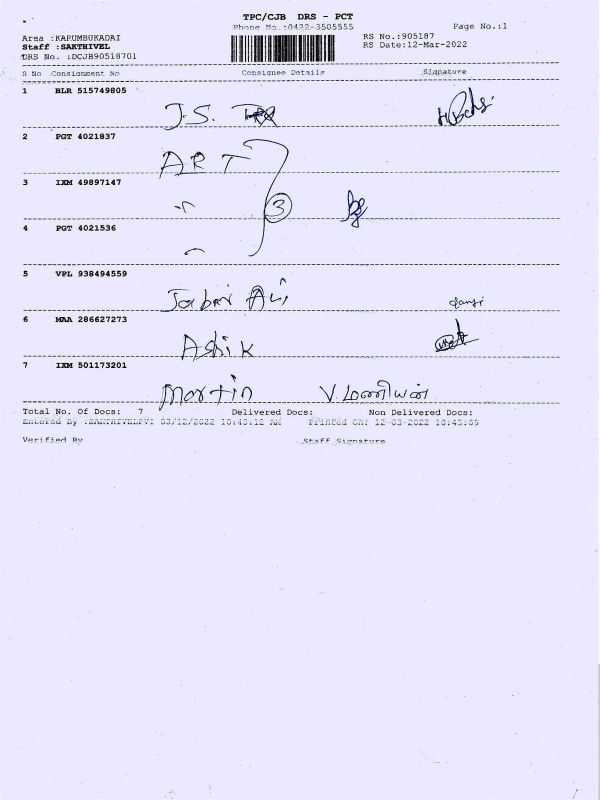 TPC/CJB DRS - PCT
Phone No.:0422-3505555 Page No.:1
Area :KARUMBUKADAI RS No.:905187
Staff :SAKTHIVEL RS Date:12-Mar-2022
DRS No. :DCJB90518701
S No Consignment No Consignee Details Signature
1 BLR 515749805
J.S.
2 PGT 4021837
ART
3 IXM 49897147
3
4 PGT 4021536
5 VPL 938494559
Jabar Ali
6 MAA 286627273
Ashik
7 IXM 501173201
Martin V.
Total No. Of Docs: 7 Delivered Docs: Non Delivered Docs:
Entered By :SAKTHIVELPV: 03/12/2022 10:43:12 AM Printed On: 12-03-2022 10:43:59
Verified By Staff Signature